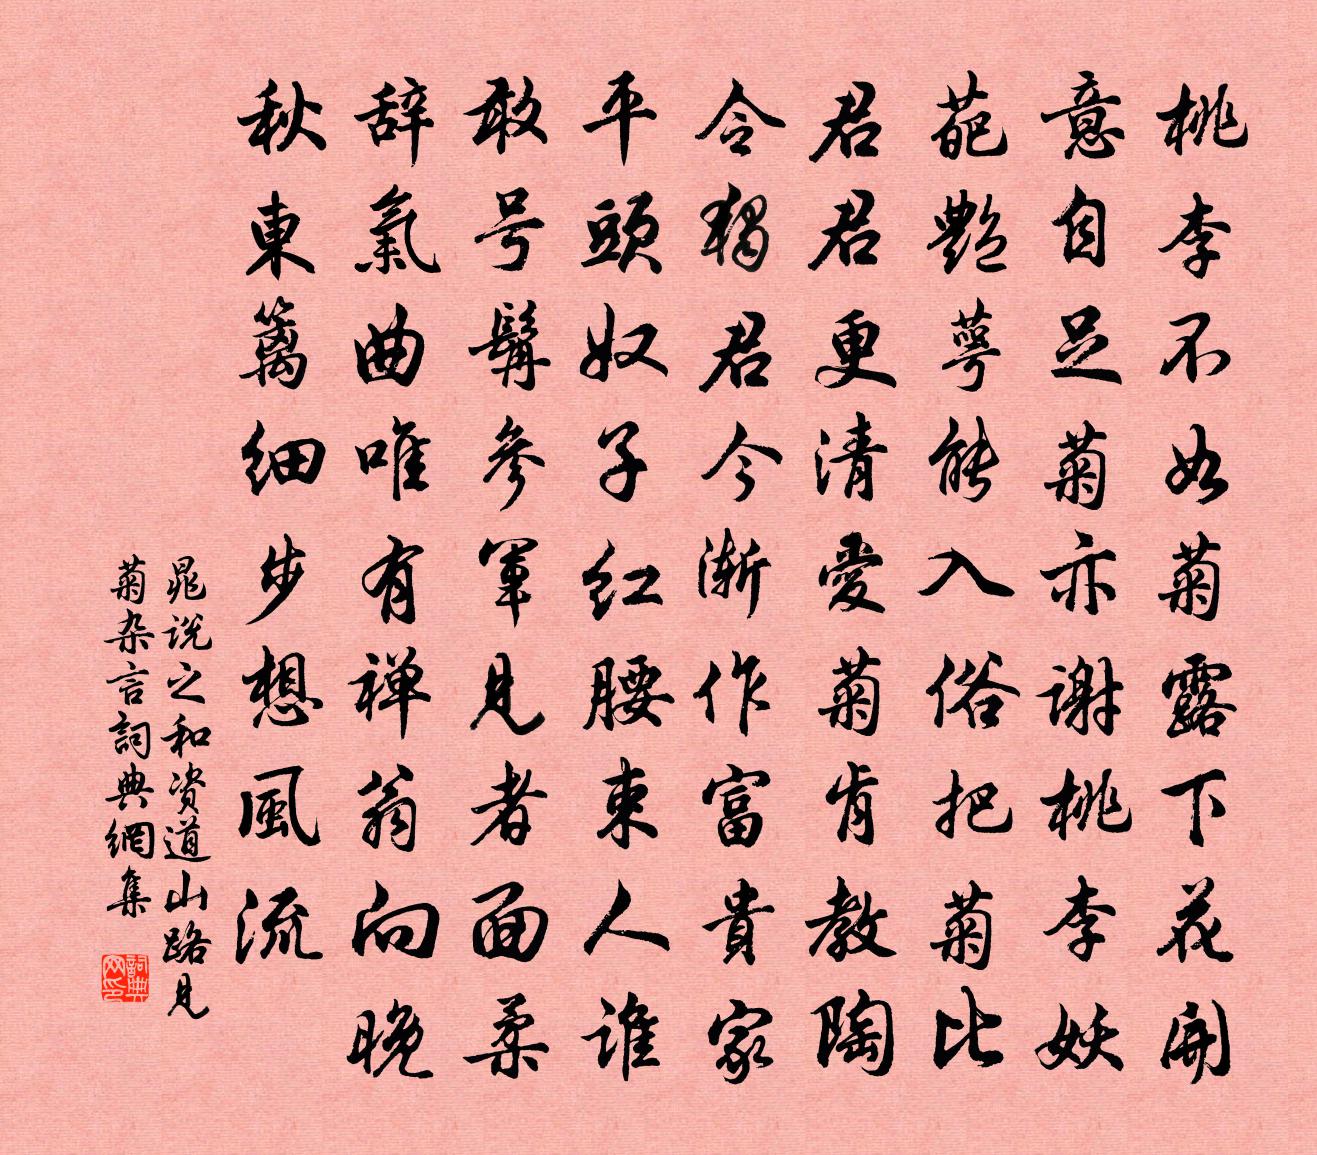 桃李不如菊露下花開
意自足菊亦謝桃李妖
葩艷萼能入俗把菊比
君君更清愛菊肯教陶
令獨君今漸作富貴家
平頭奴子紅腰束人誰
敢号髯參軍見者面柔
辞氣曲唯有禅翁向晚
秋東篱細步想風流
晁说之和资道山路見
菊杂言詞典網集
詞典網印